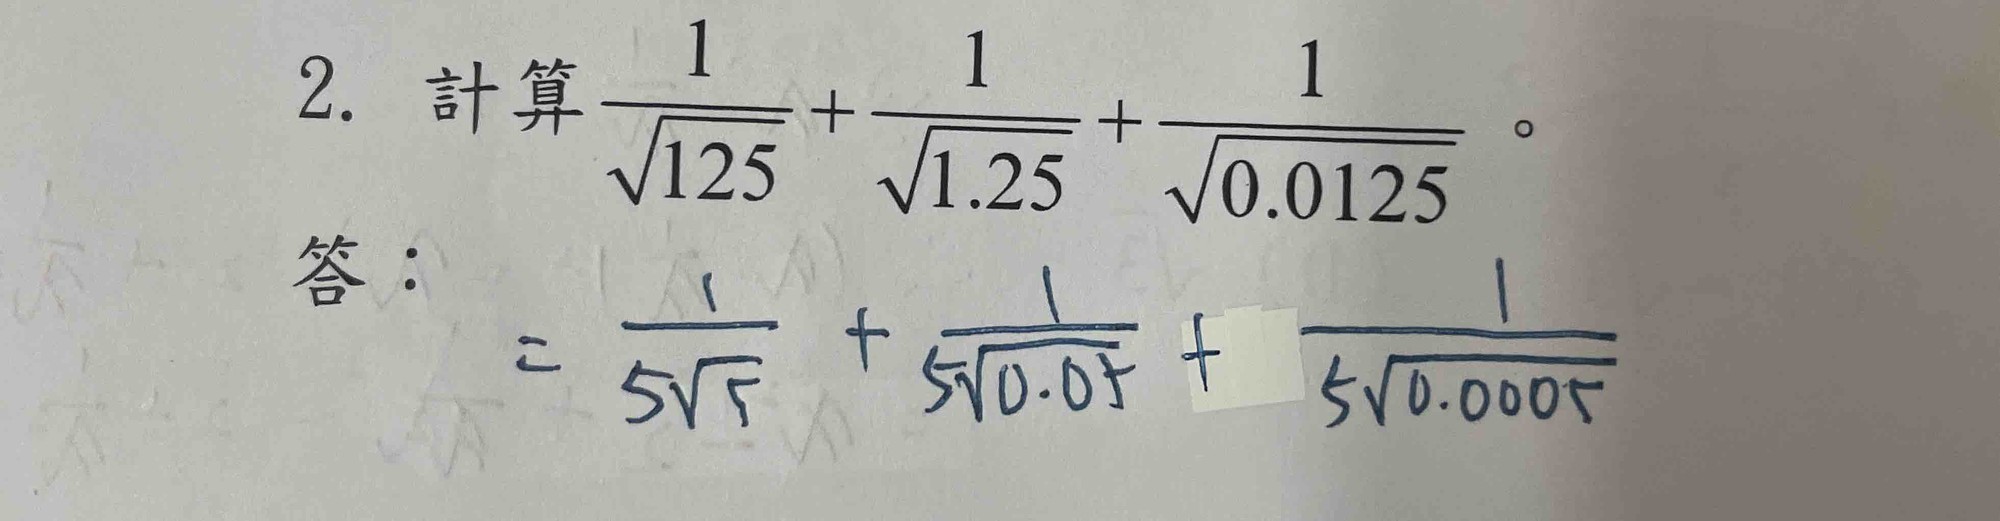 2. 計算 \frac{1}{\sqrt{125}} + \frac{1}{\sqrt{1.25}} + \frac{1}{\sqrt{0.0125}} 。
答：
= \frac{1}{5\sqrt{5}} + \frac{1}{5\sqrt{0.05}} + \frac{1}{5\sqrt{0.0005}}